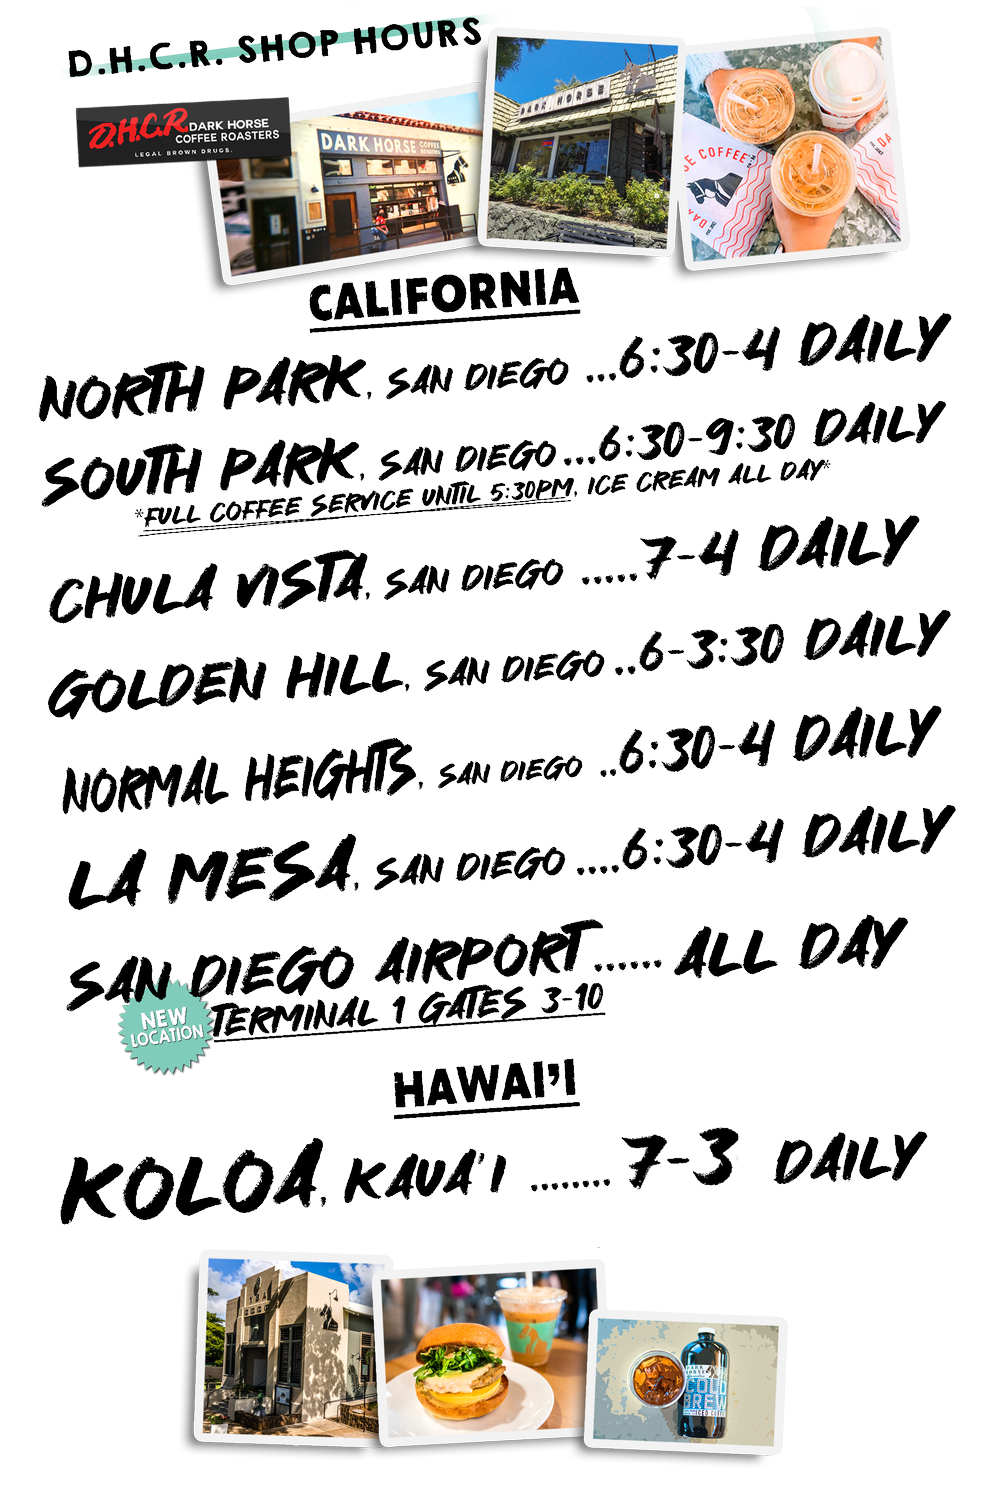 D.H.C.R. SHOP HOURS
D.H.C.R. DARK HORSE
COFFEE ROASTERS
LEGAL BROWN DRUGS.
DARK HORSE COFFEE ROASTERS
DARK HORSE
SE COFFEE
DA
DAR
CALIFORNIA
NORTH PARK, SAN DIEGO ...6:30-4 DAILY
SOUTH PARK, SAN DIEGO...6:30-9:30 DAILY
*FULL COFFEE SERVICE UNTIL 5:30PM, ICE CREAM ALL DAY*
CHULA VISTA, SAN DIEGO .....7-4 DAILY
GOLDEN HILL, SAN DIEGO ..6-3:30 DAILY
NORMAL HEIGHTS, SAN DIEGO ..6:30-4 DAILY
LA MESA, SAN DIEGO ....6:30-4 DAILY
SAN DIEGO AIRPORT...... ALL DAY
NEW LOCATION
TERMINAL 1 GATES 3-10
HAWAI'I
KOLOA, KAUA'I ........ 7-3 DAILY
DARK HORSE
COLD
BREW
ICED COFFEE